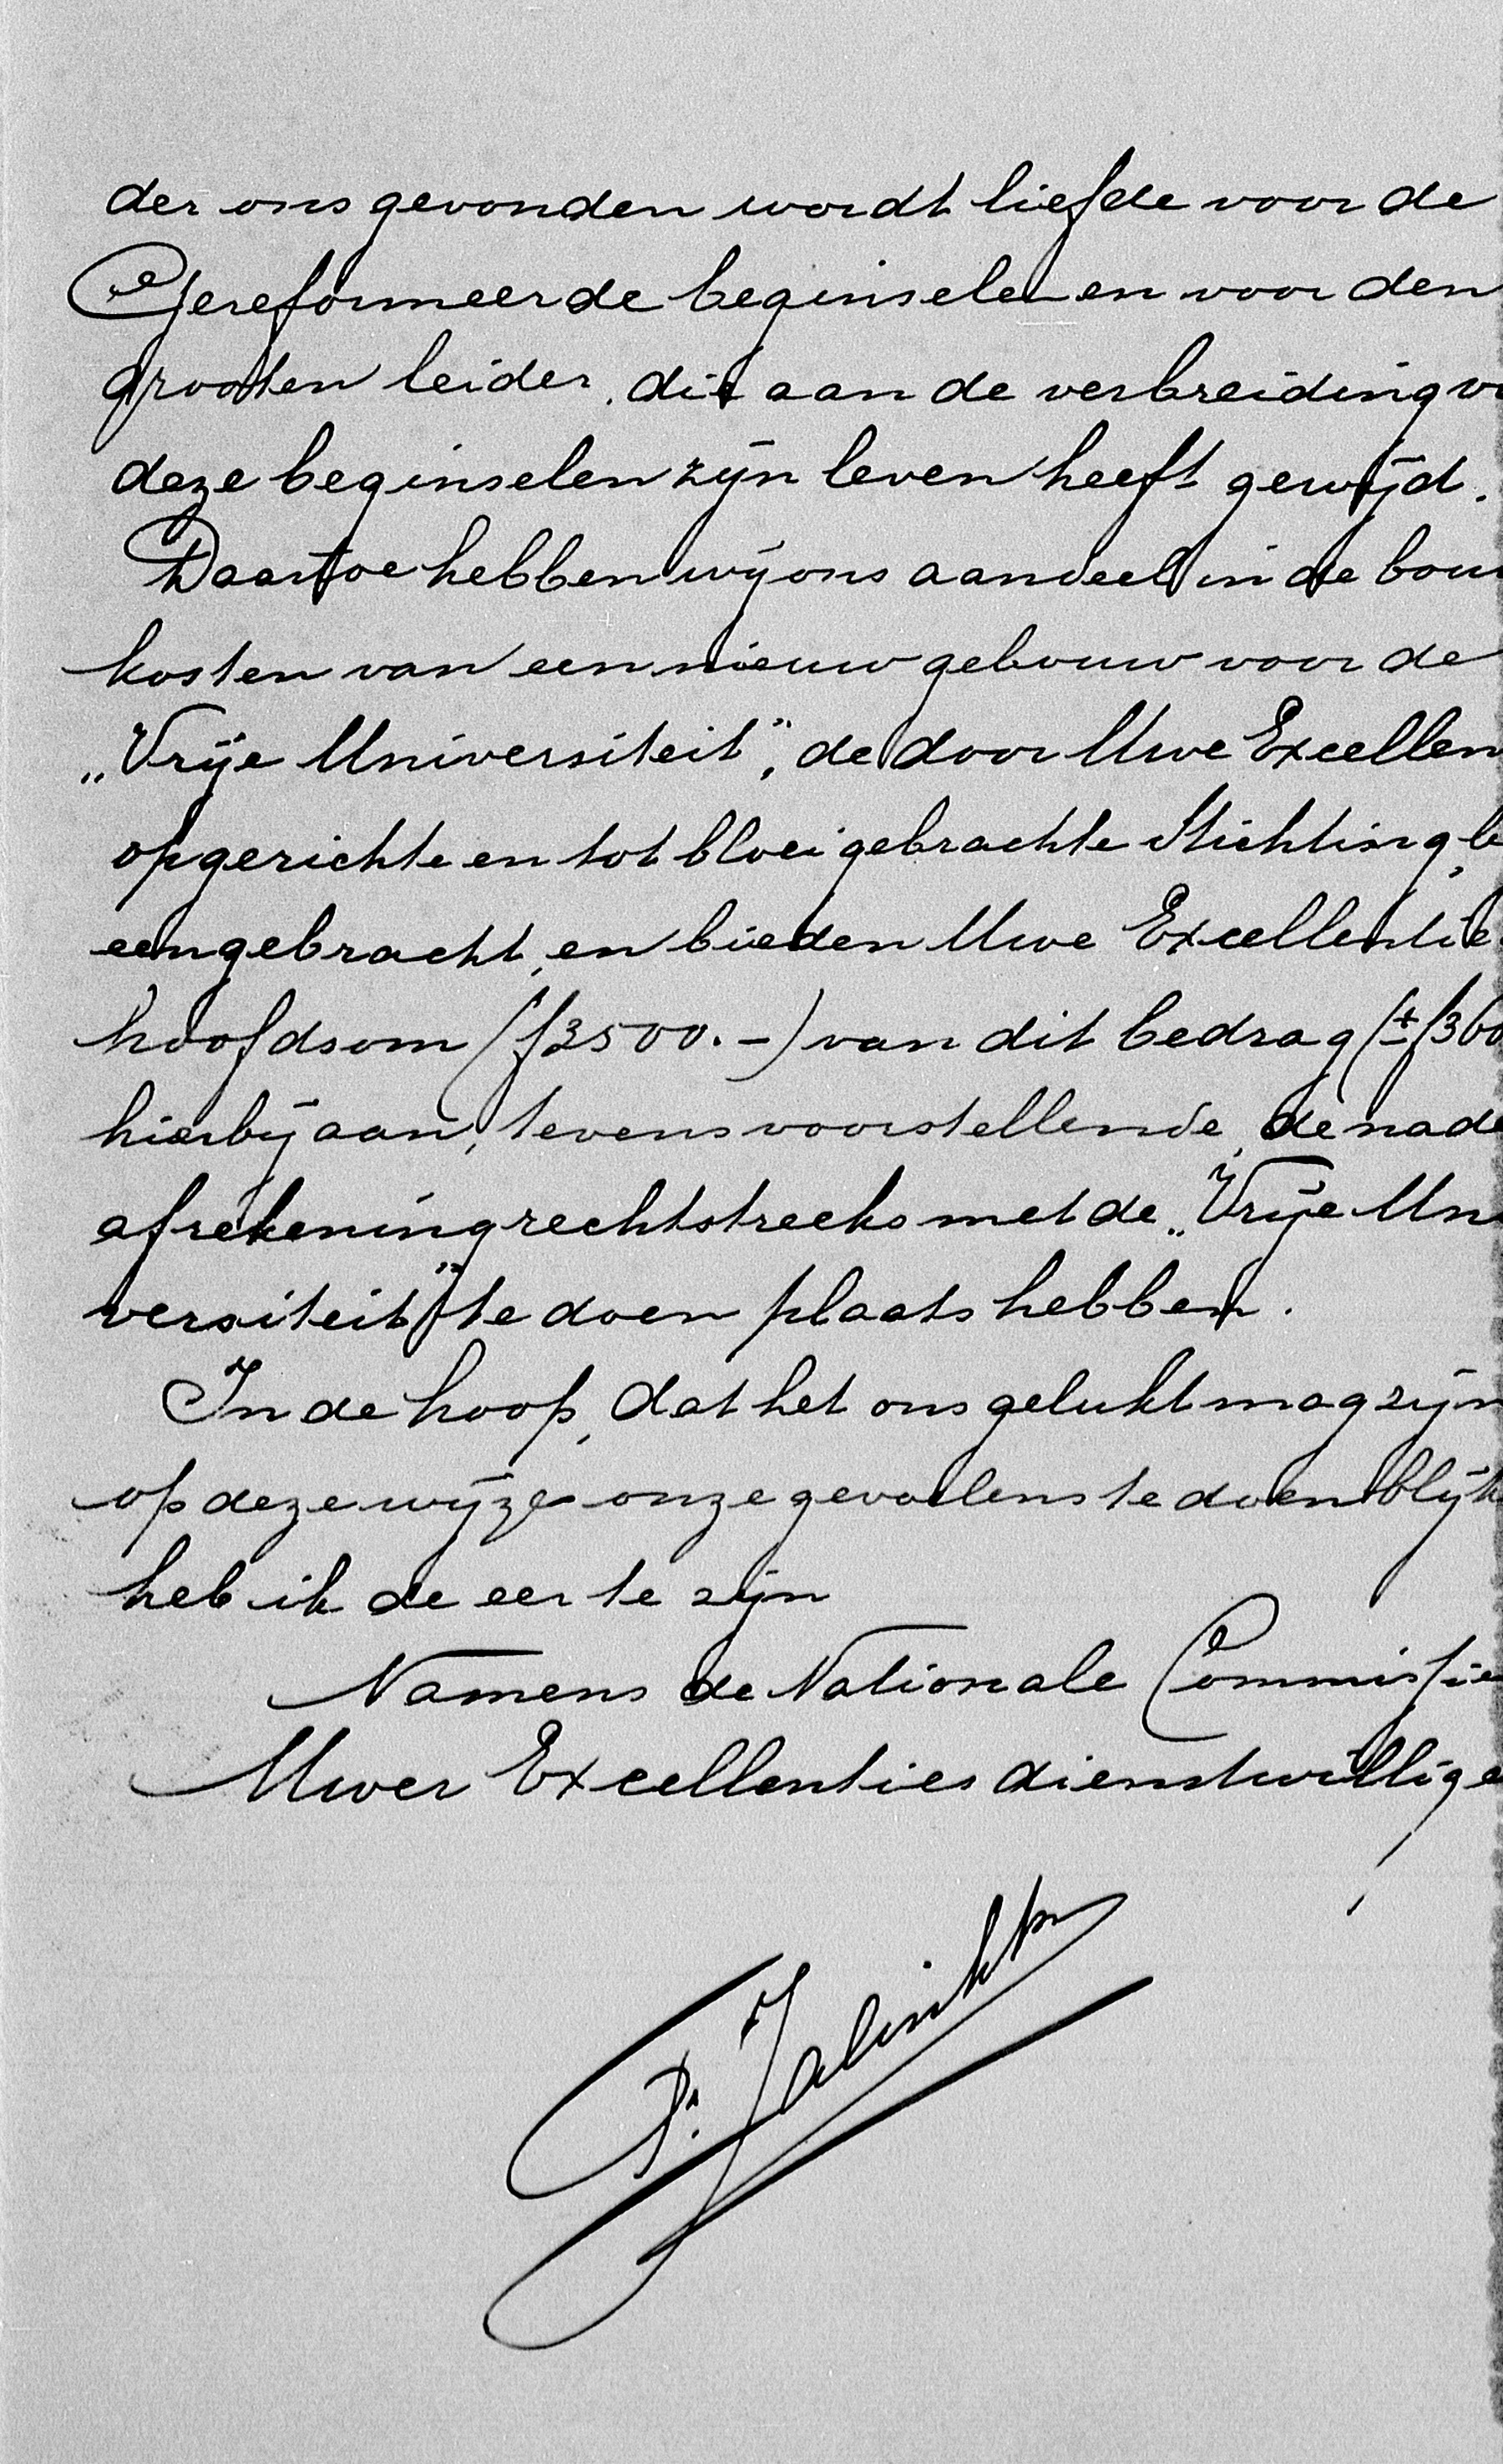 der ons gevonden wordt liefde voor de
Gereformeerde beginselen en voor den
grooten leider, die aan de verbreiding v
deze beginselen zijn leven heeft gewijd.
Daartoe hebben wij ons aandeel in de bouw
kosten van een nieuw gebouw voor de
„Vrije Universiteit”, de door Uwe Excellen
opgerichte en tot bloei gebrachte Stichting, b
eengebracht, en bieden Uwe Excellentie
hoofdsom (f3500.-) van dit bedrag (± f360
hierbij aan, tevens voorstellende, de nade
afrekening rechtstreeks met de „Vrije Un
versiteit” te doen plaats hebben.
In de hoop, dat het ons gelukt mag zijn
op deze wijze onze gevoelens te doen blijk
heb ik de eer te zijn
Namens de Nationale Commissie
Uwer Excellenties dienstwillige
P. Jalink